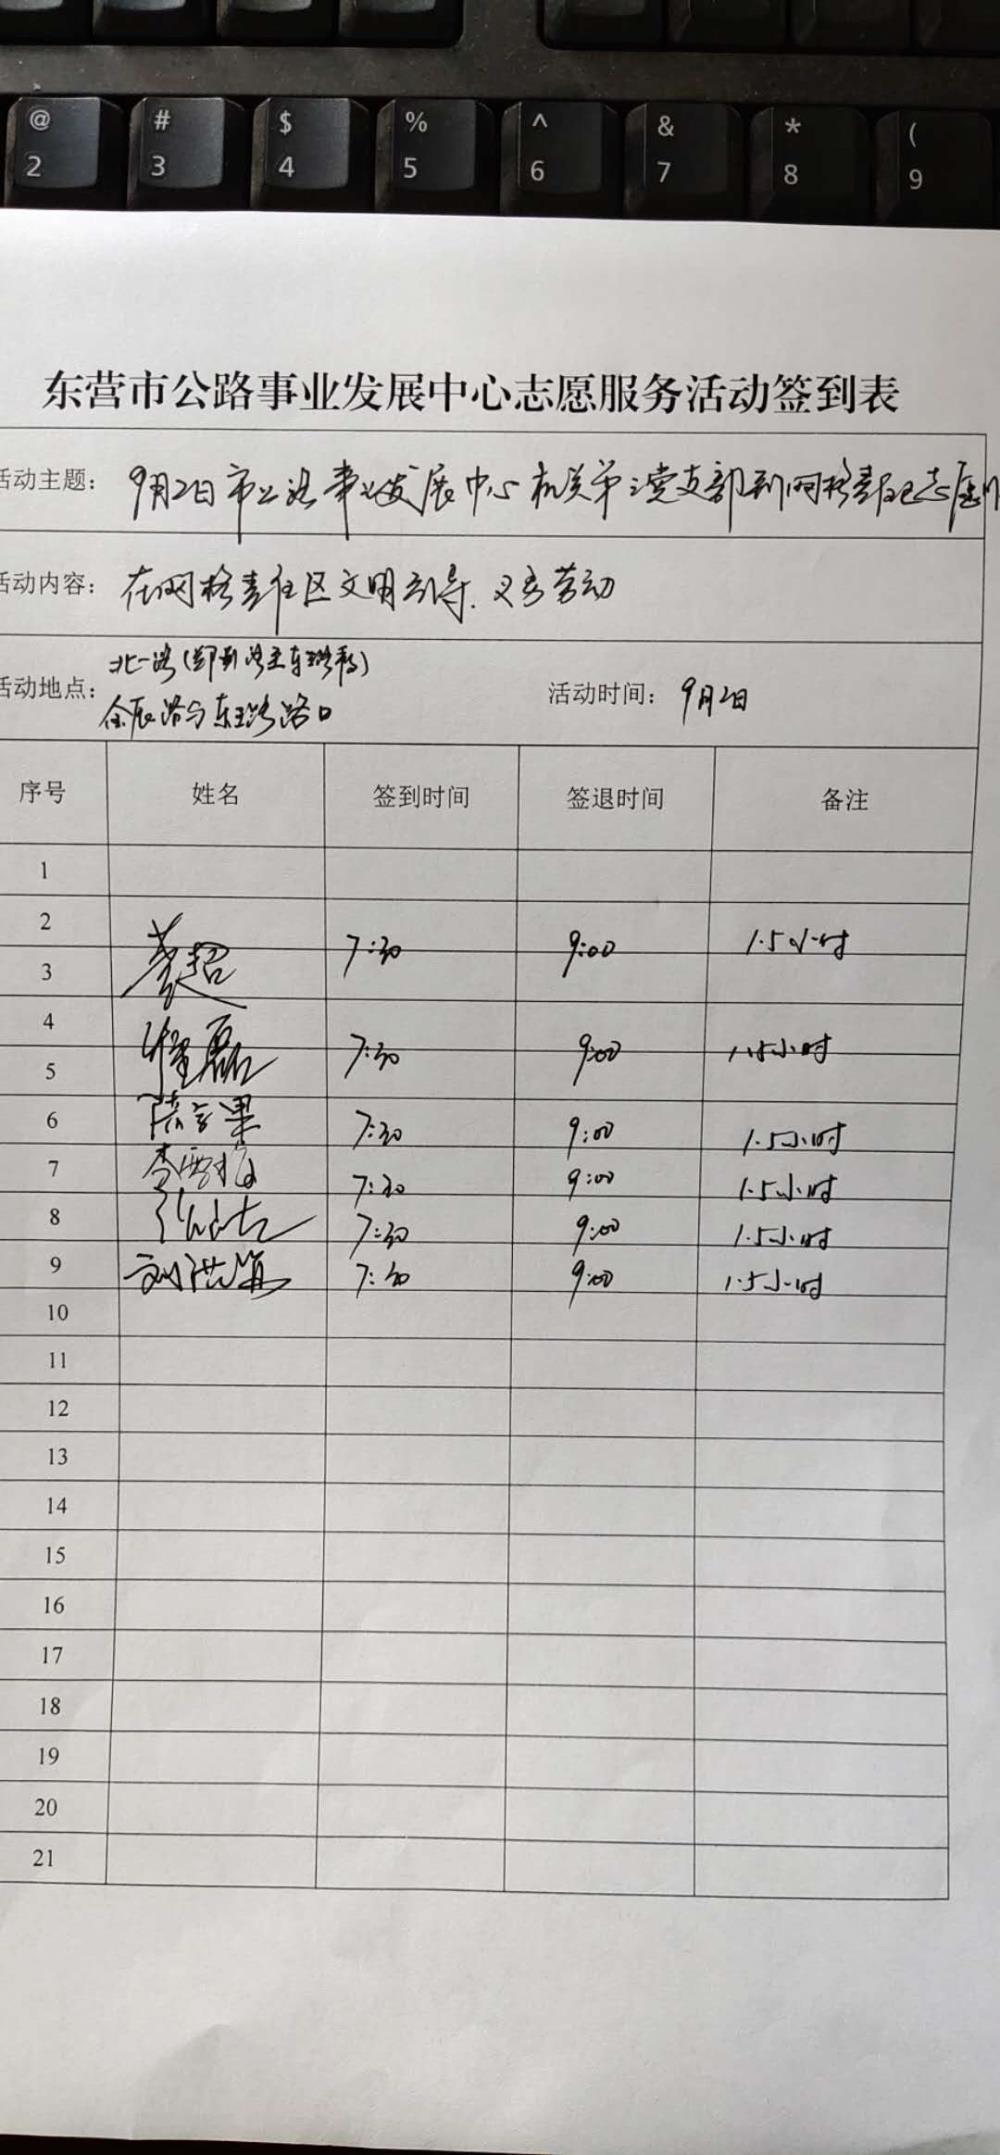 @ # $ % ^ & * (
2 3 4 5 6 7 8 9
东营市公路事业发展中心志愿服务活动签到表
活动主题： 9月2日市公路事业发展中心机关第 党支部到网格责任区志愿
活动内容： 在网格责任区文明引导、义务劳动
北一路(郑州路至东 路)
活动地点： 活动时间： 9月2日
路与东 路路口
序号 姓名 签到时间 签退时间 备注
1
2 超 7:30 9:00 1.5小时
3
4 磊 7:30 9:00 1.5小时
5
6 陈 果 7:30 9:00 1.5小时
7 李 7:30 9:00 1.5小时
8 7:30 9:00 1.5小时
9 刘洪 7:30 9:00 1.5小时
10
11
12
13
14
15
16
17
18
19
20
21